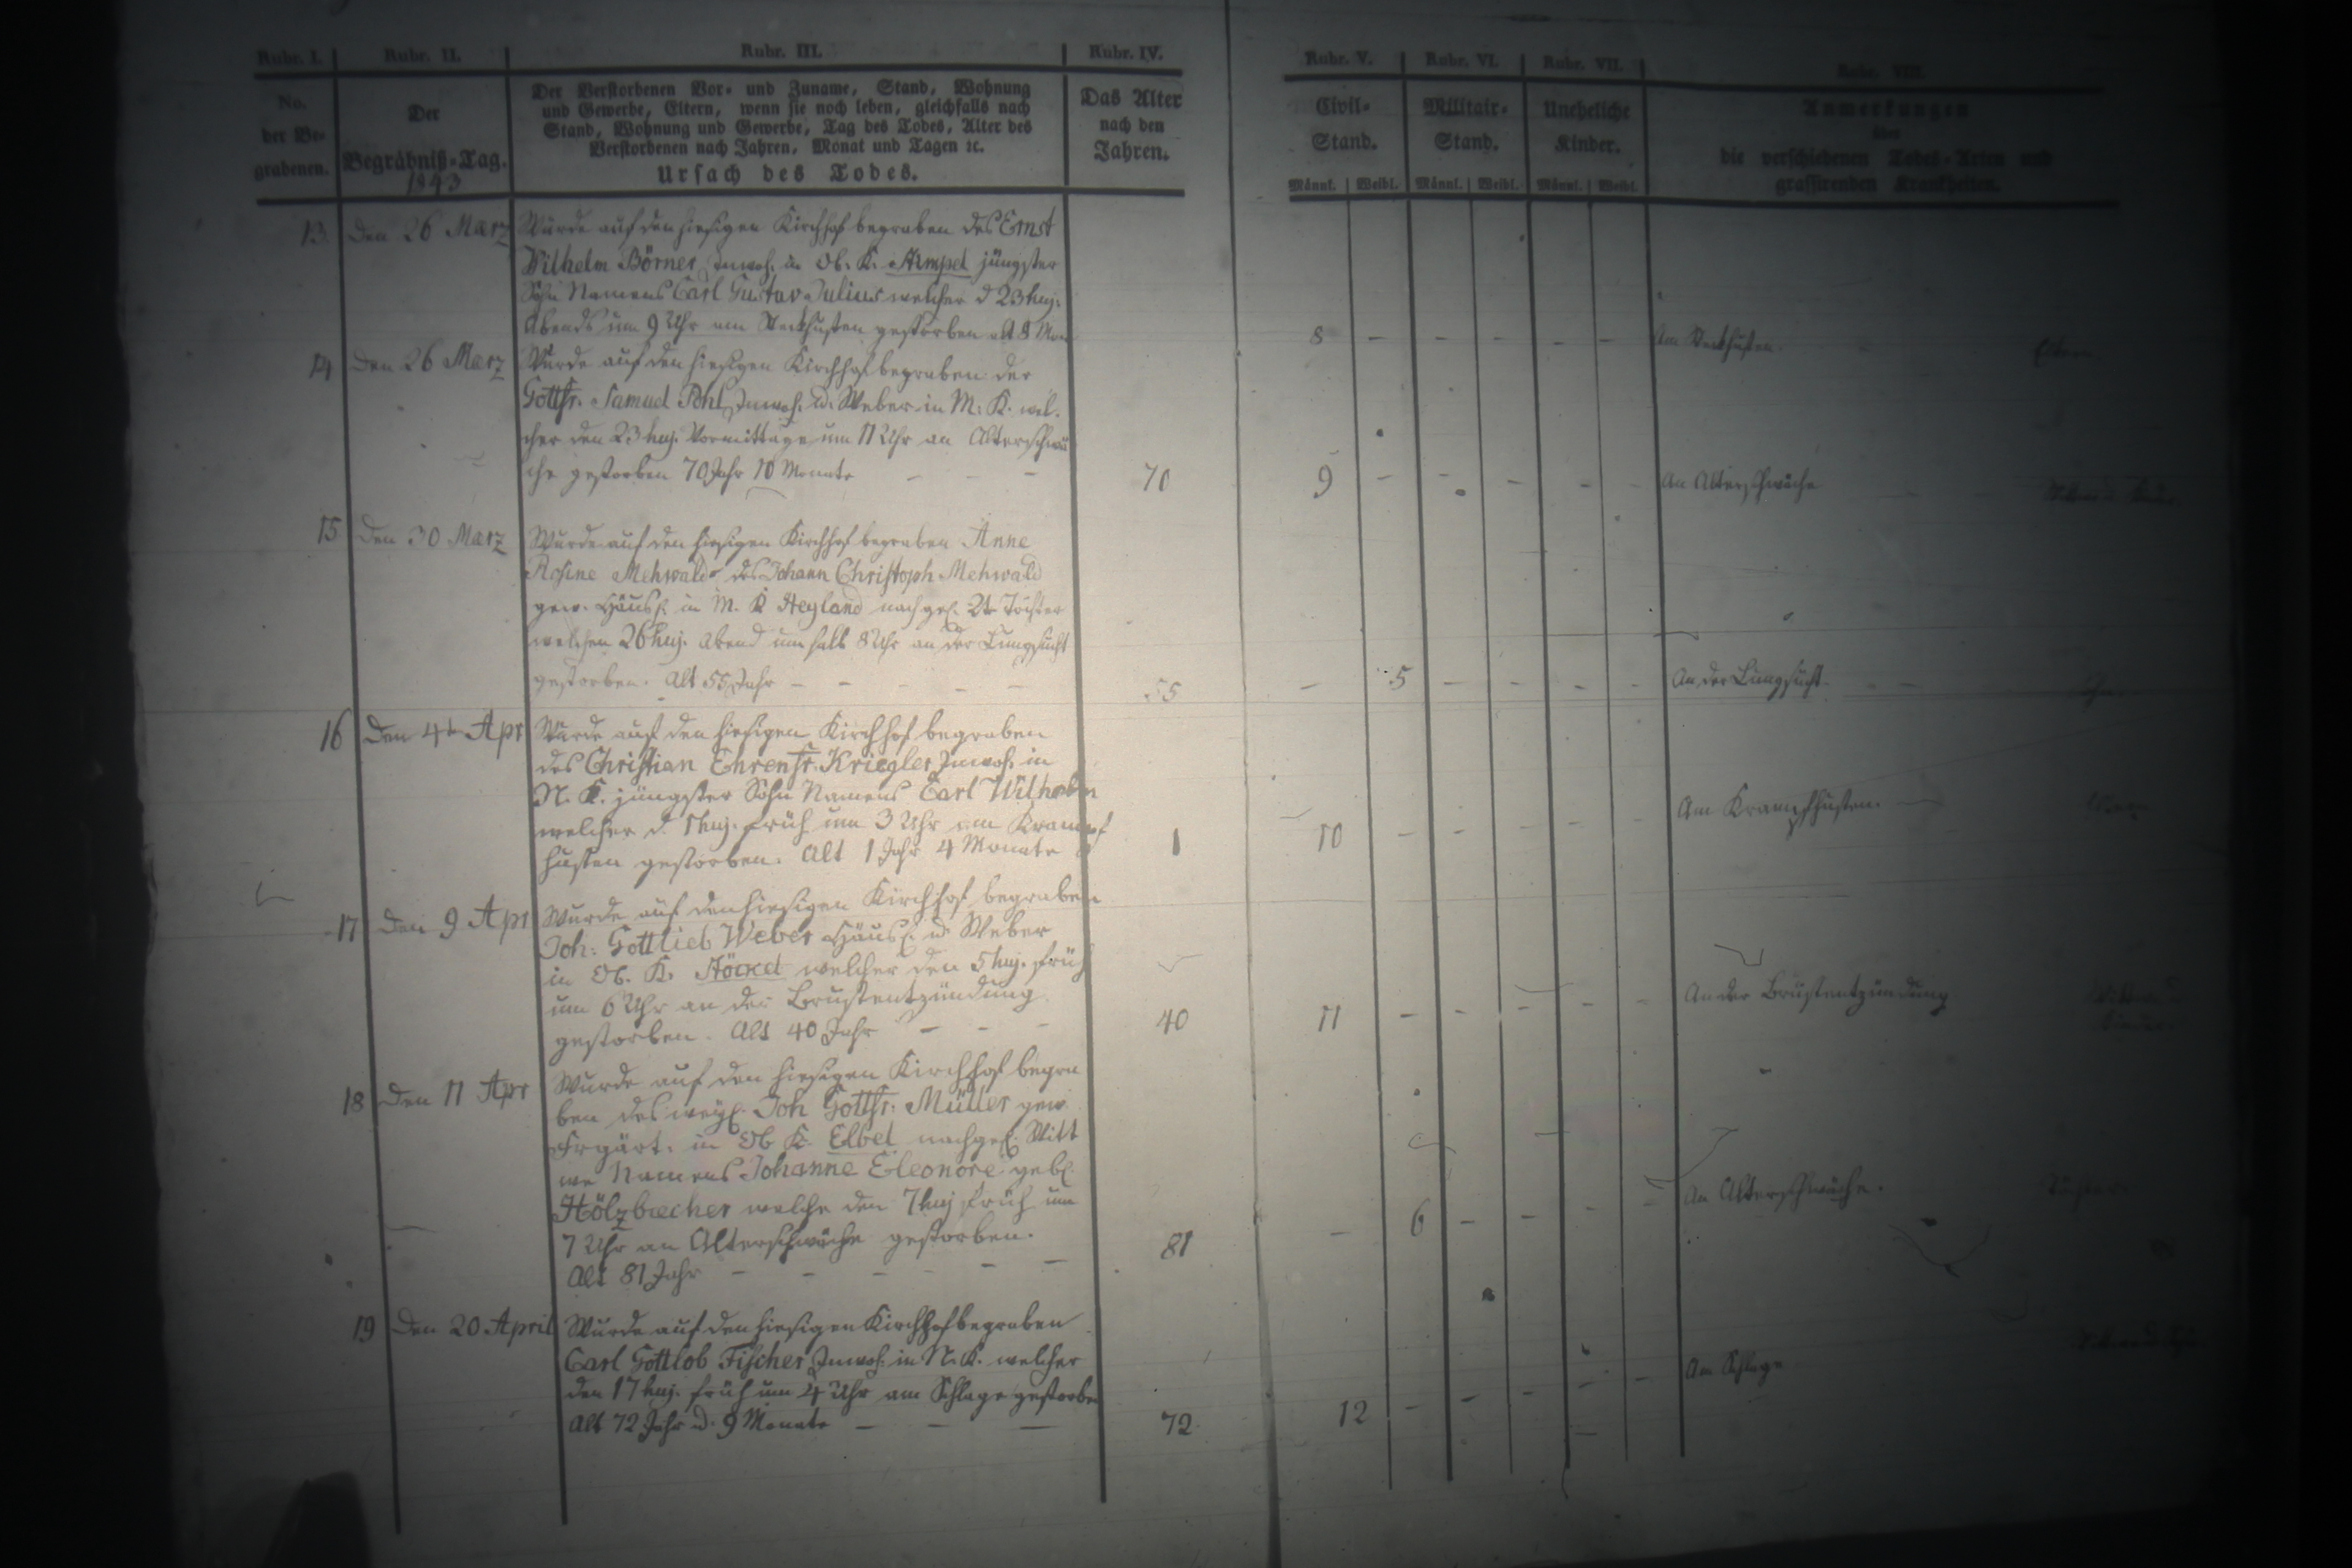 Rubr. I. Rubr. II. Rubr. III. Rubr. IV. Rubr. V. Rubr. VI. Rubr. VII. Rubr. VIII.
No. der Be- grabenen.
Der Begräbniß-Tag. 1843
Der Verstorbenen Vor- und Zuname, Stand, Wohnung
und Gewerbe, Eltern, wenn sie noch leben, gleichfalls nach
Stand, Wohnung und Gewerbe, Tag des Todes, Alter des
Verstorbenen nach Jahren, Monat und Tagen ꝛc.
Ursach des Todes.
Das Alter nach den Jahren.
Civil- Stand. Männl. Weibl.
Militair- Stand. Männl. Weibl.
Uneheliche Kinder. Männl. Weibl.
Anmerkungen
über
die verschiedenen Todes-Arten und
grassirenden Krankheiten.
13. Den 26 Maerz Wurde auf den hiesigen Kirchhof begraben des Ernst
Wilhelm Börner, Inwoh. in Ob. K. jüngster
Sohn Namens Carl Gustav Julius welcher d 23 huj.
Abends um 9 Uhr am Stickhusten gestorben alt 8 Mon
8 – – – – – Am Stickhusten.
14 Den 26 Maerz Wurde auf den hiesigen Kirchhof begraben der
Gottfr. Samuel Pohl, Inwoh. u. Weber in M. K. wel-
cher den 23 huj. Vormittags um 11 Uhr an Altersschwä
che gestorben 70 Jahr 10 Monate – – –
70 9 – – – – – An Altersschwäche
15 Den 30 Maerz Wurde auf den hiesigen Kirchhof begraben Anne
Rosine Mehwald des Johann Christoph Mehwald
gew. Häusl. in M. K Heyland nachgel. 2te Tochter
welche den 26 huj. Abend um halb 8 Uhr an der Lungsucht
gestorben. Alt 55 Jahr – – – – –
55 – 5 – – – – An der Lungsucht.
16 Den 4t Apr Wurde auf den hiesigen Kirchhof begraben
des Christian Ehrenfr. Kriegler, Inwoh. in
N. K. jüngster Sohn Namens Carl Wilhelm
welcher d. 1 huj. früh um 3 Uhr am Krampf
husten gestorben. Alt 1 Jahr 4 Monate
1 10 – – – – – Am Krampfhusten.
17 Den 9 Apr Wurde auf den hiesigen Kirchhof begraben
Joh: Gottlieb Weber Häusl. u. Weber
in Ob. K. Stöckel welcher den 5 huj. früh
um 6 Uhr an der Brustentzündung
gestorben. Alt 40 Jahr – – –
40 11 – – – – – An der Brustentzündung
18 Den 11 Apr Wurde auf den hiesigen Kirchhof begra
ben des weyl. Joh Gottfr. Müller gew.
Frgärt. in Ob K. Elbel nachgel. Witt
we Namens Johanne Eleonore geb.
Hölzbecher welche den 7 huj früh um
7 Uhr an Altersschwäche gestorben.
Alt 81 Jahr – – – – – –
81 – 6 – – – – An Altersschwäche.
19 Den 20 April Wurde auf den hiesigen Kirchhof begraben
Carl Gottlob Fischer, Inwoh. in N. K. welcher
den 17 huj. früh um 4 Uhr am Schlage gestorben
Alt 72 Jahr u. 9 Monate – – –
72 12 – – – – – Am Schlage